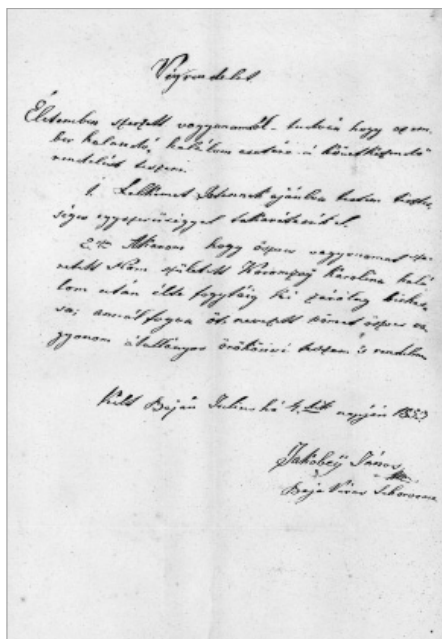 Végrendelet
Életemben szerzett vagyonomról tudva hogy az em-
ber halandó, halálom esetére a következendő
rendelést teszem:
1. Lelkemet Istennek ajánlva testem tisztes-
séges egyszerűséggel takaríttassék el.
2. Akarom hogy összes vagyonomat sze-
retett Nőm született Karolina halá-
lom után élte fogytáig birhas-
sa; annálfogva őt nevezett nőmet összes va-
gyonom általányos örökösévé teszem és rendelem
Kelt Baján Julius hó 4. napján 1853
Jakobeÿ János
Baja Város